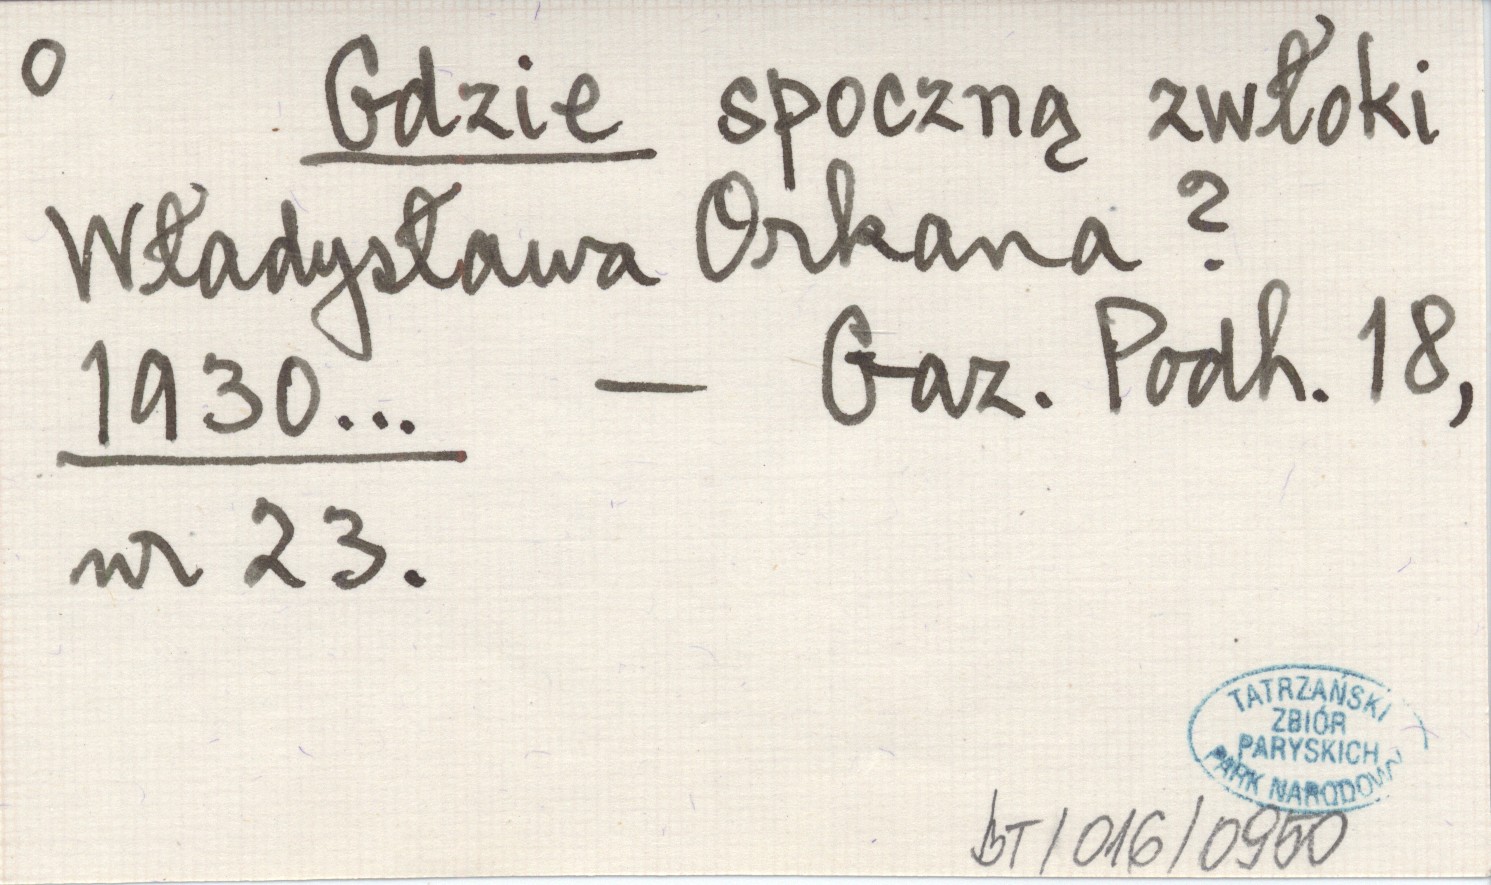 o Gdzie spoczną zwłoki
Władysława Orkana?
1930... — Gaz. Podh. 18,
nr 23.
TATRZAŃSKI
ZBIÓR
PARYSKICH
PARK NARODOWY
BT/016/0950